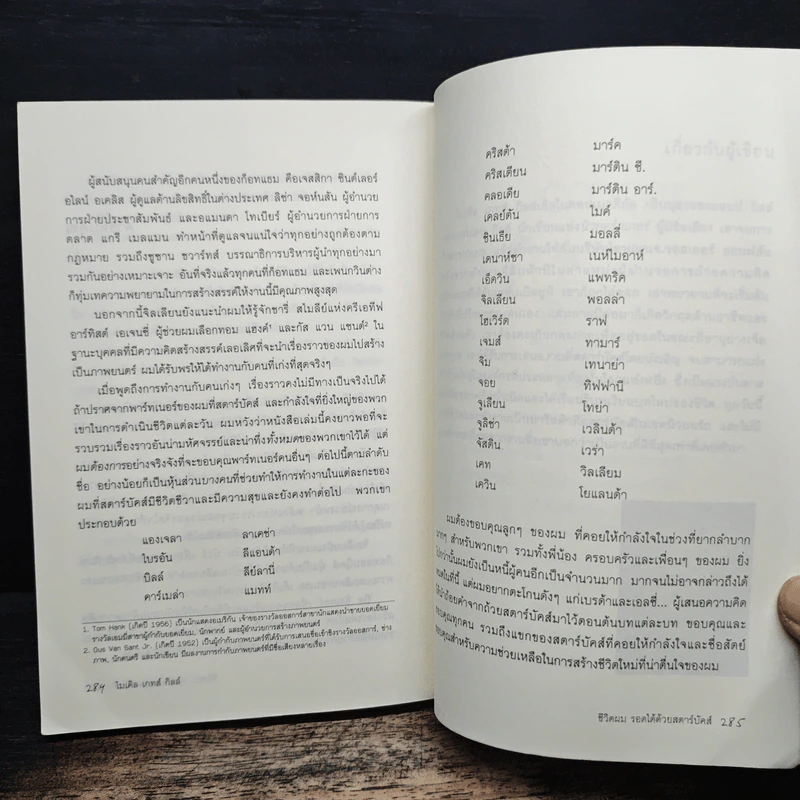 ผู้สนับสนุนคนสำคัญอีกคนหนึ่งของก็อทแธม คือเจสสิกา ซินด์เลอร์
อไลน์ อเคลิส ผู้ดูแลด้านลิขสิทธิ์ในต่างประเทศ ลิซ่า จอห์นสัน ผู้อำนวย
การฝ่ายประชาสัมพันธ์ และอแมนดา โทเบียร์ ผู้อำนวยการฝ่ายการ
ตลาด แกรี เมลแมน ทำหน้าที่ดูแลจนแน่ใจว่าทุกอย่างถูกต้องตาม
กฎหมาย รวมถึงซูซาน ชวาร์ทส์ บรรณาธิการบริหารผู้นำทุกอย่างมา
รวมกันอย่างเหมาะเจาะ อันที่จริงแล้วทุกคนที่ก็อทแธม และเพนกวินต่าง
ก็ทุ่มเทความพยายามในการสร้างสรรค์ให้งานนี้มีคุณภาพสูงสุด
นอกจากนี้จิลเลียนยังแนะนำผมให้รู้จักชารี่ สไมลีย์แห่งครีเอทีฟ
อาร์ทิสต์ เอเจนซี่ ผู้ช่วยผมเลือกทอม แฮงค์¹ และกัส แวน แซนต์² ใน
ฐานะบุคคลที่มีความคิดสร้างสรรค์เลอเลิศที่จะนำเรื่องราวของผมไปสร้าง
เป็นภาพยนตร์ ผมได้รับพรให้ได้ทำงานกับคนที่เก่งที่สุดจริงๆ
เมื่อพูดถึงการทำงานกับคนเก่งๆ เรื่องราวคงไม่มีทางเป็นจริงไปได้
ถ้าปราศจากพาร์ทเนอร์ของผมที่สตาร์บัคส์ และกำลังใจที่ยิ่งใหญ่ของพวก
เขาในการดำเนินชีวิตแต่ละวัน ผมหวังว่าหนังสือเล่มนี้คงยาวพอที่จะ
รวบรวมเรื่องราวอันน่ามหัศจรรย์และน่าทึ่งทั้งหมดของพวกเขาไว้ได้ แต่
ผมต้องการอย่างจริงจังที่จะขอบคุณพาร์ทเนอร์คนอื่นๆ ต่อไปนี้ตามลำดับ
ชื่อ อย่างน้อยก็เป็นหุ้นส่วนบางคนที่ช่วยทำให้การทำงานในแต่ละกะของ
ผมที่สตาร์บัคส์มีชีวิตชีวาและมีความสุขและยังคงทำต่อไป พวกเขา
ประกอบด้วย
แองเจลา ลาเคซ่า
ไบรอัน ลีแอนด้า
บิลล์ ลีย์ลานี่
คาร์เมล่า แมทท์
1. Tom Hank (เกิดปี 1956) เป็นนักแสดงอเมริกัน เจ้าของรางวัลออสการ์สาขานักแสดงนำชายยอดเยี่ยม
รางวัลเอมมี่สาขาผู้กำกับยอดเยี่ยม, นักพากย์ และผู้อำนวยการสร้างภาพยนตร์
2. Gus Van Sant Jr. (เกิดปี 1952) เป็นผู้กำกับภาพยนตร์ที่ได้รับการเสนอชื่อเข้าชิงรางวัลออสการ์, ช่าง
ภาพ, นักดนตรี และนักเขียน มีผลงานการกำกับภาพยนตร์ที่มีชื่อเสียงหลายเรื่อง
284 ไมเคิล เกทส์ กิลล์
คริสต้า มาร์ค
คริสเตียน มาร์ติน ซี.
คลอเดีย มาร์ติน อาร์.
เคลย์ตัน ไมค์
ซินเธีย มอลลี่
เดนาห์ซา เนห์ไมอาห์
เอ็ดวิน แพทริค
จิลเลียน พอลล่า
โฮเวิร์ด ราฟ
เจมส์ ทามาร์
จิม เทนาย่า
จอย ทิฟฟานี
จูเลียน โทย่า
จูลิซ่า เวลินด้า
จัสติน เวร่า
เคท วิลเลียม
เควิน โยแลนด้า
ผมต้องขอบคุณลูกๆ ของผม ที่คอยให้กำลังใจในช่วงที่ยากลำบาก
มากๆ สำหรับพวกเขา รวมทั้งพี่น้อง ครอบครัวและเพื่อนๆ ของผม ยิ่ง
ไปกว่านั้นผมยังเป็นหนี้ผู้คนอีกเป็นจำนวนมาก มากจนไม่อาจกล่าวถึงได้
หมดในที่นี้ แต่ผมอยากตะโกนดังๆ แก่เบรด้าและเอลซี่... ผู้เสนอความคิด
ให้นำถ้อยคำจากถ้วยสตาร์บัคส์มาไว้ตอนต้นบทแต่ละบท ขอบคุณและ
ขอบคุณทุกคน รวมถึงแขกของสตาร์บัคส์ที่คอยให้กำลังใจและซื่อสัตย์
ขอบคุณสำหรับความช่วยเหลือในการสร้างชีวิตใหม่ที่น่าตื่นใจของผม
ชีวิตผม รอดได้ด้วยสตาร์บัคส์ 285